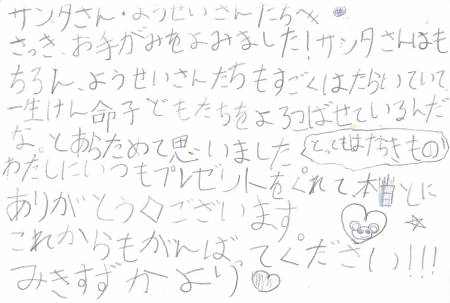 サンタさん・ようせいさんたちへ
さっき、お手がみをよみました!サンタさんはも
ちろん、ようせいさんたちもすごくはたらいていて、
一生けん命子どもたちをよろこばせているんだ
な。とあらためて思いました とってもはたらきもの
わたしにいつもプレゼントをくれて本とに
ありがとう◇ございます。
これからもがんばってください!!!
みきすずかより